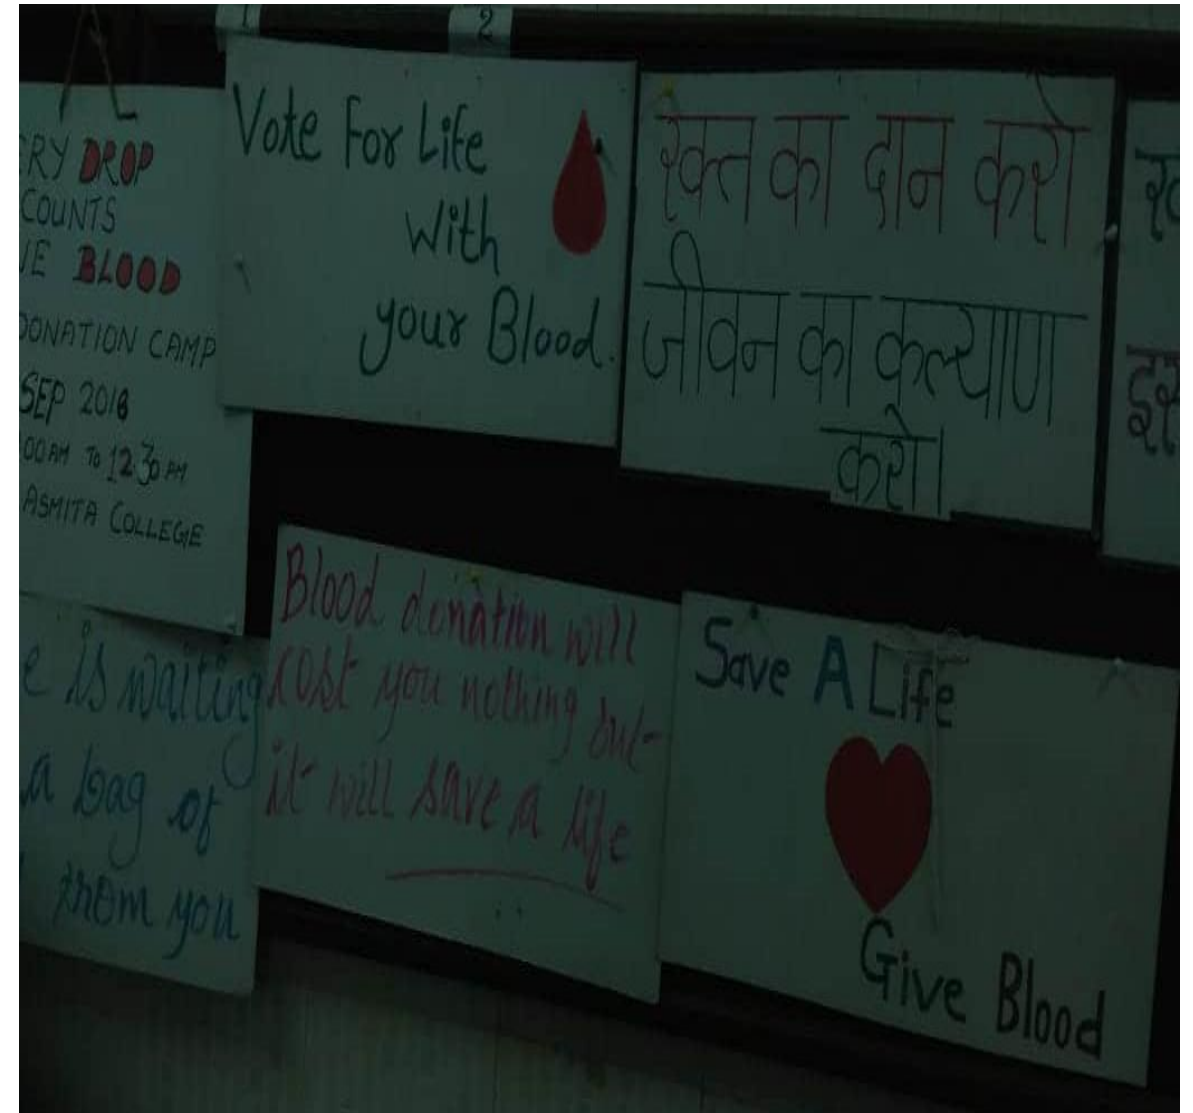 1
2
ERY DROP
COUNTS
VE BLOOD
DONATION CAMP
SEP 2016
00 AM TO 12.30 PM
ASMITA COLLEGE
Vote For Life
with
your Blood.
रक्त का दान करो
जीवन का कल्याण
करो।
इस
e is waiting
a bag of
from you
Blood donation will
cost you nothing but
it will save a life
Save A Life
Give Blood